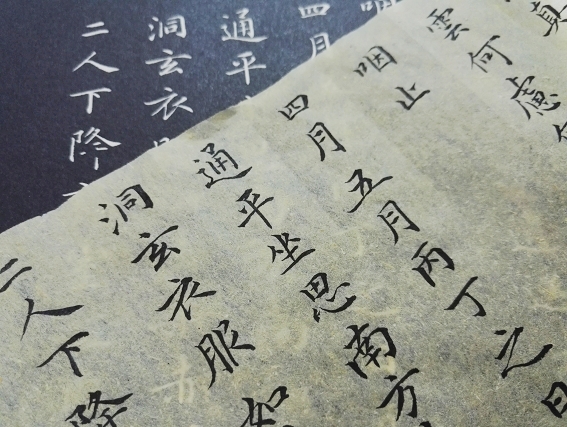 真
雲何慮
咽止
四月五月丙丁之日
通平坐思南方
洞玄衣服如
二人下降
咽
四月
通平
洞玄衣
二人下降